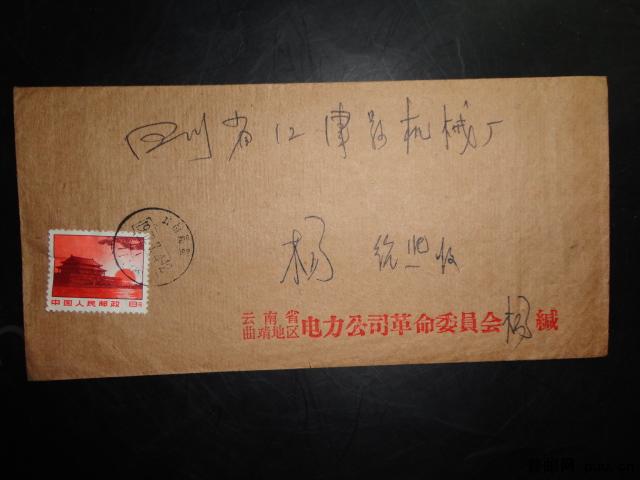 四川省江津县机械厂
杨绍照收
中国人民邮政 8分
云南省
曲靖地区 电力公司革命委員会 杨 缄